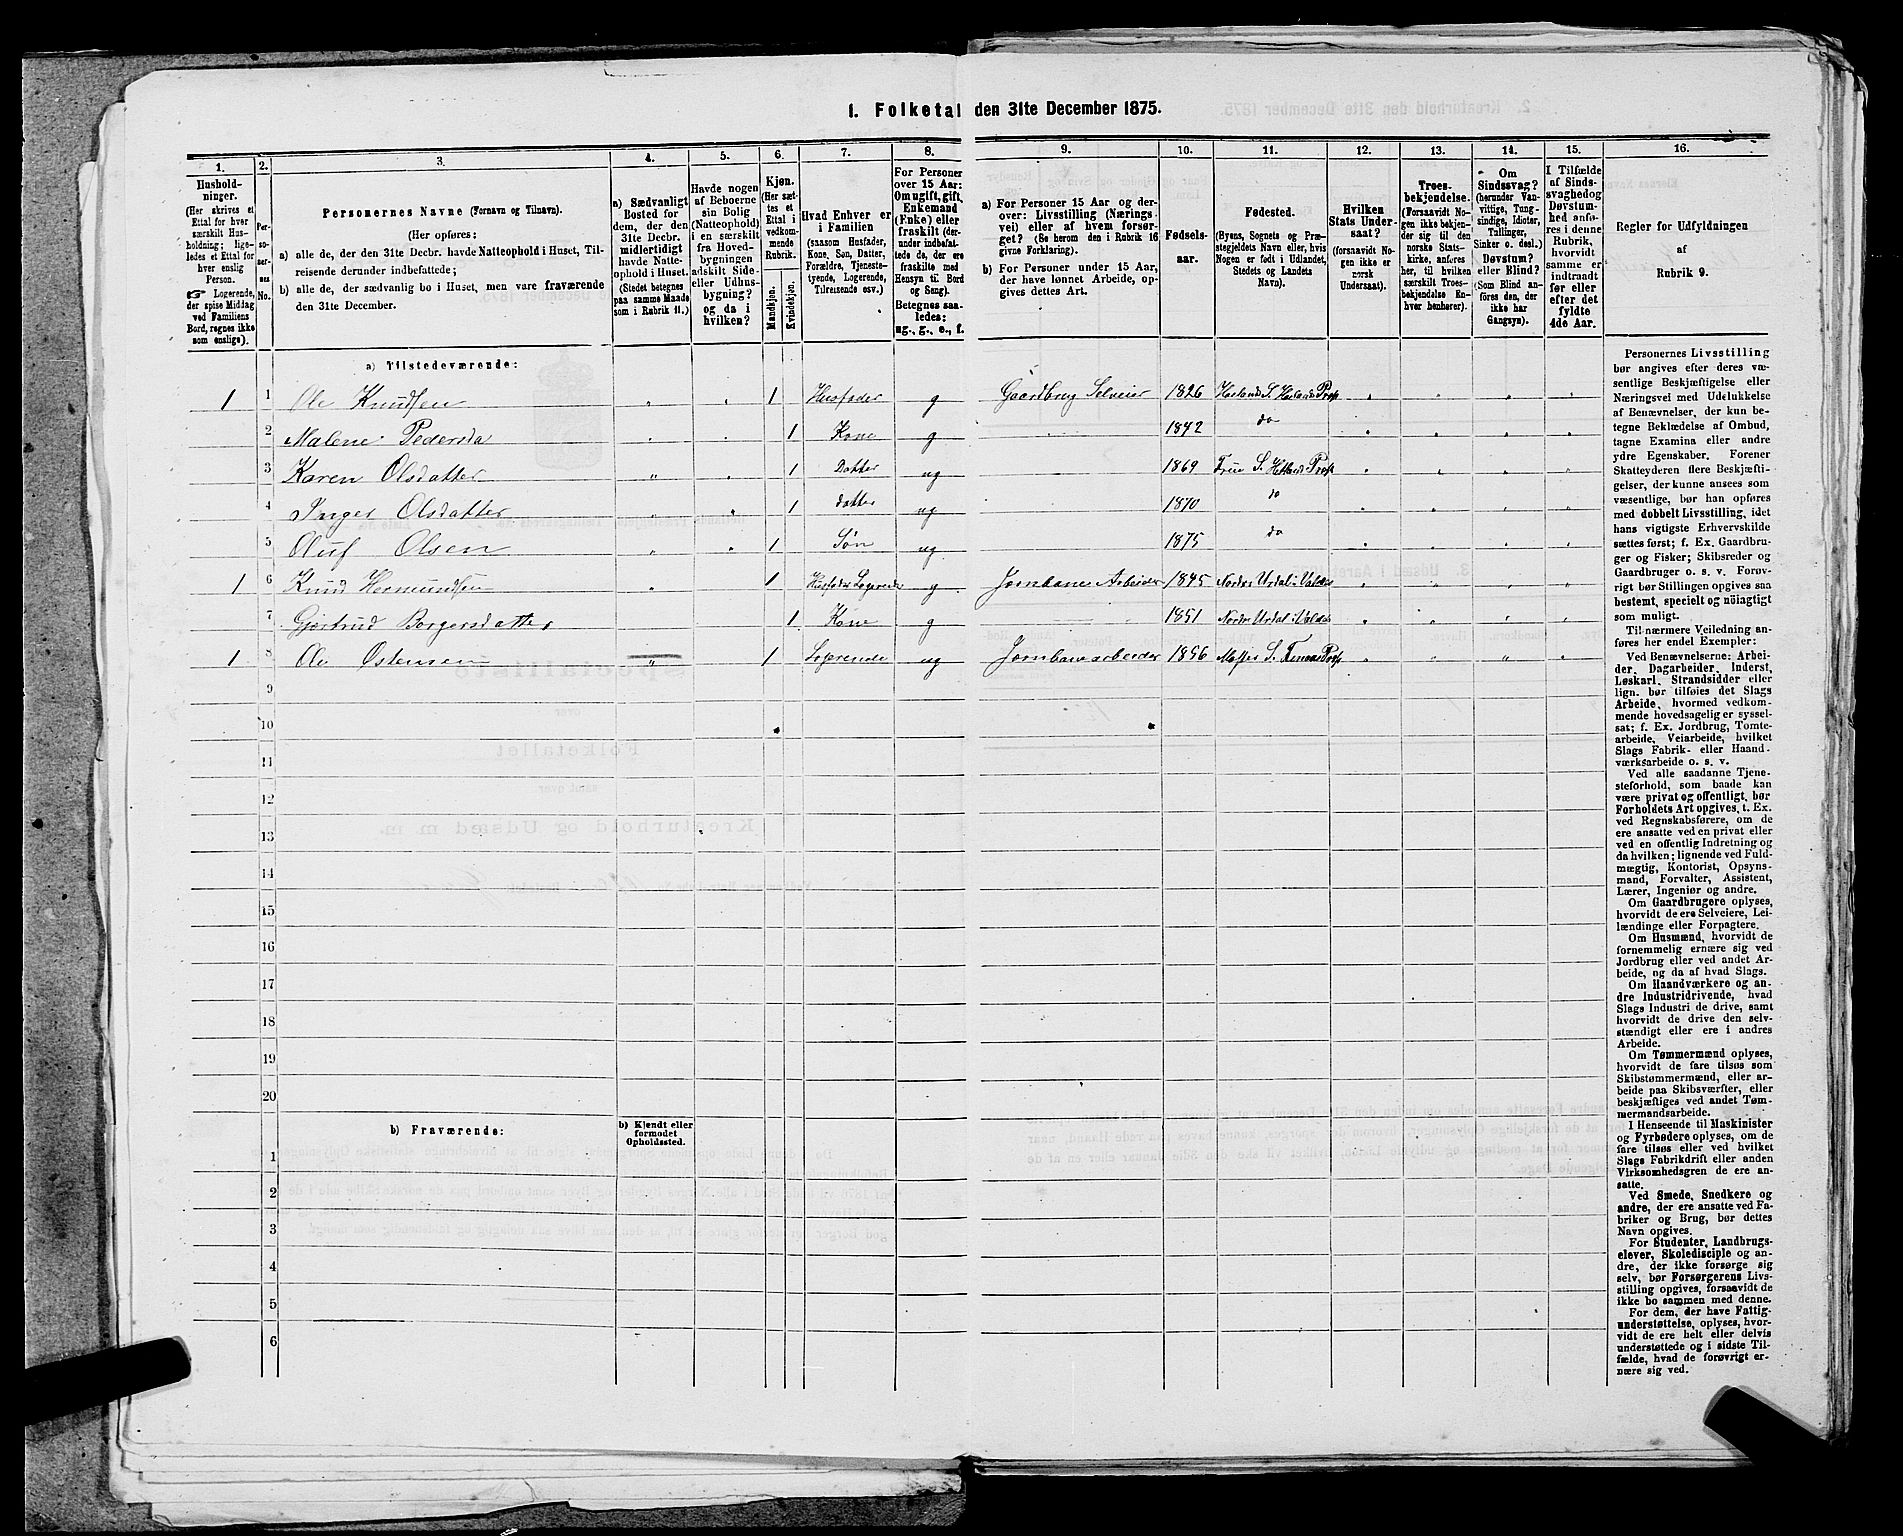 1. Folketal den 31te December 1875.
1. 2. 3. 4. 5. 6. 7. 8. 9. 10. 11. 12. 13. 14. 15. 16.
Hushold-
ninger.
(Her skrives et
Ettal for hver
særskilt Hus-
holdning; lige-
ledes et Ettal for
hver enslig
Person.
☞ Logerende,
der spise Middag
ved Familiens
Bord, regnes ikke
som enslige).
Per-
so-
ner-
nes
No.
Personernes Navne (Fornavn og Tilnavn).
(Her opføres:
a) alle de, der den 31te Decbr. havde Natteophold i Huset, Til-
reisende derunder indbefattede;
b) alle de, der sædvanlig bo i Huset, men vare fraværende
den 31te December.
a) Sædvanligt
Bosted for
dem, der den
31te Decbr.
midlertidigt
havde Natte-
ophold i Huset.
(Stedet betegnes
paa samme Maade
som i Rubrik 11.)
Havde nogen
af Beboerne
sin Bolig
(Natteophold)
i en særskilt
fra Hoved-
bygningen
adskilt Side-
eller Udhus-
bygning?
og da i
hvilken?
Kjøn.
(Her sæt-
tes et
Ettal i
vedkom-
mende
Rubrik.
Mandkjøn.
Kvindekjøn.
Hvad Enhver er
i Familien
(saasom Husfader,
Kone, Søn, Datter,
Forældre, Tjeneste-
tyende, Logerende,
Tilreisende osv.)
For Personer
over 15 Aar:
Om ugift, gift,
Enkemand
(Enke) eller
fraskilt (der-
under indbefat-
tede de, der ere
fraskilte med
Hensyn til Bord
og Seng).
Betegnes saa-
ledes:
ug., g., e., f.
a) For Personer 15 Aar og der-
over: Livsstilling (Nærings-
vei) eller af hvem forsør-
get? (Se herom den i Rubrik 16
givne Forklaring).
b) For Personer under 15 Aar,
der have lønnet Arbeide, op-
gives dettes Art.
Fødsels-
aar.
Fødested.
(Byens, Sognets og Præ-
stegjeldets Navn eller, hvis
Nogen er født i Udlandet,
Stedets og Landets
Navn).
Hvilken
Stats Under-
saat?
(forsaavidt No-
gen ikke er
norsk
Undersaat).
Troes-
bekjendelse.
(Forsaavidt No-
gen ikke bekjen-
der sig til den
norske Stats-
kirke, anføres
her, til hvilken
særskilt Troes-
bekjendelse En-
hver henhører).
Om
Sindssvag?
(herunder Van-
vittige, Tung-
sindige, Idioter,
Tullinger,
Sinker o. desl.)
Døvstum?
eller Blind?
(Som Blind an-
føres den, der
ikke har
Gangsyn).
I Tilfælde
af Sinds-
svaghed og
Døvstum-
hed anfø-
res i denne
Rubrik,
hvorvidt
samme er
indtraadt
før eller
efter det
fyldte
4de Aar.
Regler for Udfyldningen
af
Rubrik 9.
a) Tilstedeværende:
1 1 Ole Knudsen „ „ 1 Husfader g Gaardbrug Selveier 1826
2 Malene Pedersda 1 Kone g 1842 do
3 Karen Olsdatter „ „ 1 Datter ug 1869
4 Inger Olsdatter „ „ 1 datter ug 1870 do
5 Oluf Olsen „ „ 1 Søn ug 1875 do
1 6 Knud Hermundsen „ 1 Husfader Logerende g Jernbane Arbeider 1845
7 Gjertrud Borgersdatter 1 Kone g 1851
1 8 Ole Østensen „ 1 Logerende ug Jernbanearbeider 1856
9
10
11
12
13
14
15
16
17
18
19
20
b) Fraværende:
b) Kjendt eller
formodet
Opholdssted.
1
2
3
4
5
6
Personernes Livsstilling
bør angives efter deres væ-
sentlige Beskjæftigelse eller
Næringsvei med Udelukkelse
af Benævnelser, der kun be-
tegne Beklædelse af Ombud,
tagne Examina eller andre
ydre Egenskaber. Forener
Skatteyderen flere Beskjæfti-
gelser, der kunne ansees som
væsentlige, bør han opføres
med dobbelt Livsstilling, idet
hans vigtigste Erhvervskilde
sættes først; f. Ex. Gaardbru-
ger og Fisker; Skibsreder og
Gaardbruger o. s. v. Forøv-
rigt bør Stillingen opgives saa
bestemt, specielt og nöiagtigt
som muligt.
Til nærmere Veiledning an-
føres her endel Exempler:
Ved Benævnelserne: Arbei-
der, Dagarbeider, Inderst,
Løskarl, Strandsidder eller
lign. bør tilføies det Slags
Arbeide, hvormed vedkom-
mende hovedsagelig er syssel-
sat; f. Ex. Jordbrug, Tomte-
arbeide, Veiarbeide, hvilket
Slags Fabrik- eller Haand-
værksarbeide o. s. v.
Ved alle saadanne Tjene-
steforhold, som baade kan
være privat og offentligt, bør
Forholdets Art opgives, t. Ex.
ved Regnskabsførere, om de
ere ansatte ved en privat eller
ved en offentlig Indretning og
da hvilken; lignende ved Fuld-
mægtig, Kontorist, Opsyns-
mand, Forvalter, Assistent,
Lærer, Ingeniør og andre.
Om Gaardbrugere oplyses,
hvorvidt de ere Selveiere, Lei-
lændinge eller Forpagtere.
Om Husmænd, hvorvidt de
fornemmelig ernære sig ved
Jordbrug eller ved andet Ar-
beide, og da af hvad Slags.
Om Haandværkere og an-
dre Industridrivende, hvad
Slags Industri de drive, samt
hvorvidt de drive den selv-
stændigt eller ere i andres
Arbeide.
Om Tømmermænd oplyses,
hvorvidt de fare tilsøs som
Skibstømmermænd, eller ar-
beide paa Skibsværfter, eller
beskjæftiges ved andet Tøm-
mermandsarbeide.
I Henseende til Maskinister
og Fyrbødere oplyses, om de
fare tilsøs eller ved hvilket
Slags Fabrikdrift eller anden
Virksomhedsgren de ere an-
satte.
Ved Smede, Snedkere og
andre, der ere ansatte ved Fa-
briker og Brug, bør dettes
Navn opgives.
For Studenter, Landbrugs-
elever, Skoledisciple og an-
dre, der ikke forsørge sig
selv, bør Forsørgerens Livs-
stilling opgives, forsaavidt de
ikke bo sammen med denne.
For dem, der have Fattig-
understøttelse, oplyses, hvor-
vidt de ere helt eller delvis
understøttede og i sidste Til-
fælde, hvad de forøvrigt er-
nære sig ved.